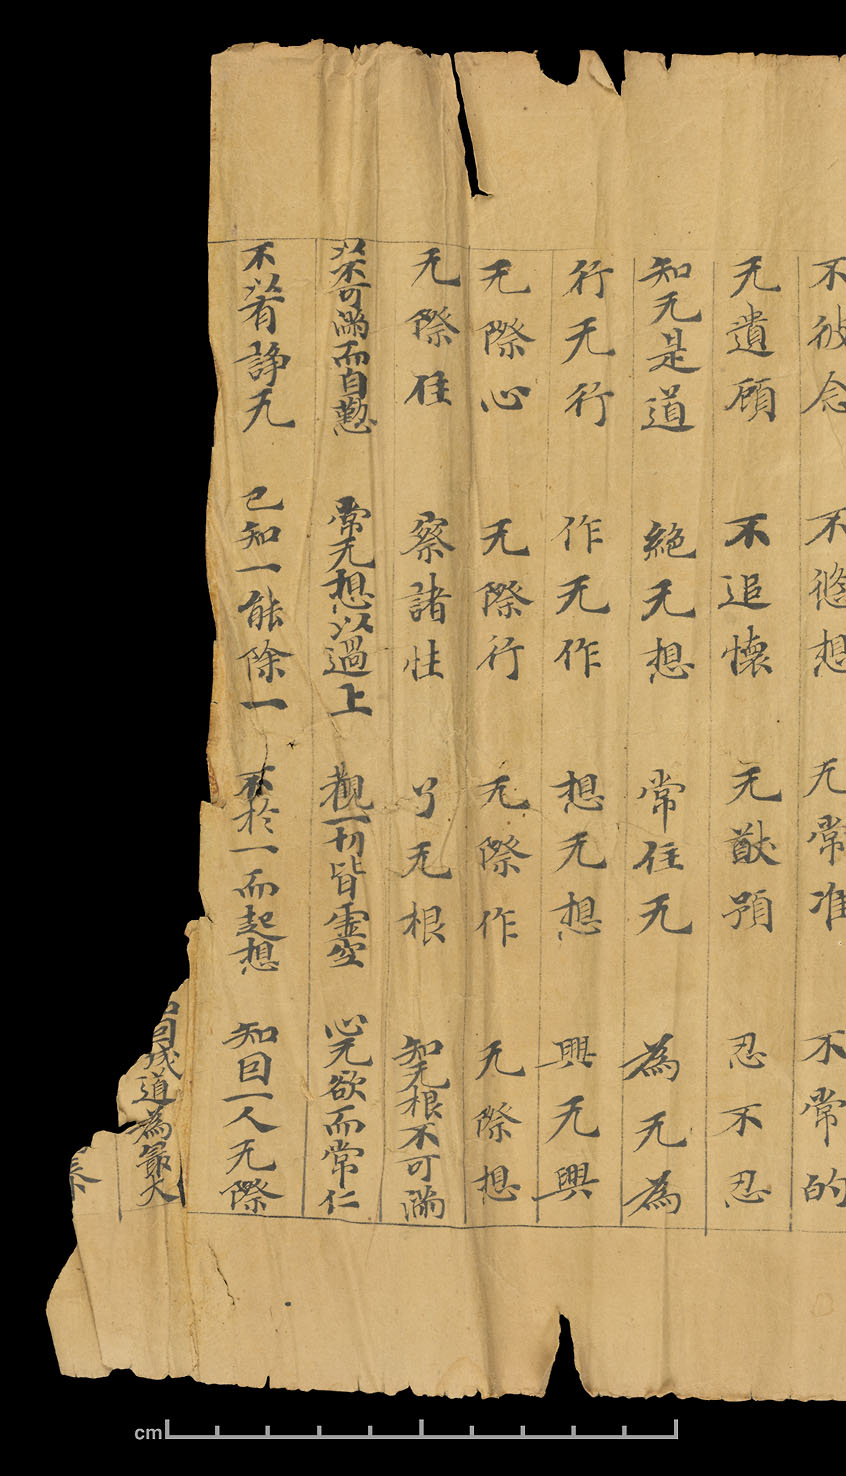 不彼念 不 想 无常准 不常的
无遺顧 不追懷 无猷預 忍不忍
知无是道 絕无想 常住无 為无為
行无行 作无作 想无想 興无興
无際心 无際行 无際作 无際想
无際住 察諸性 了无根 知无根不可滿
以不可滿而自懃 常无想以過上 觀一切皆虛空 心无欲而常仁
不以有諍无 已知一能除一 不於一而起想 知因一人无際
因成道為最大